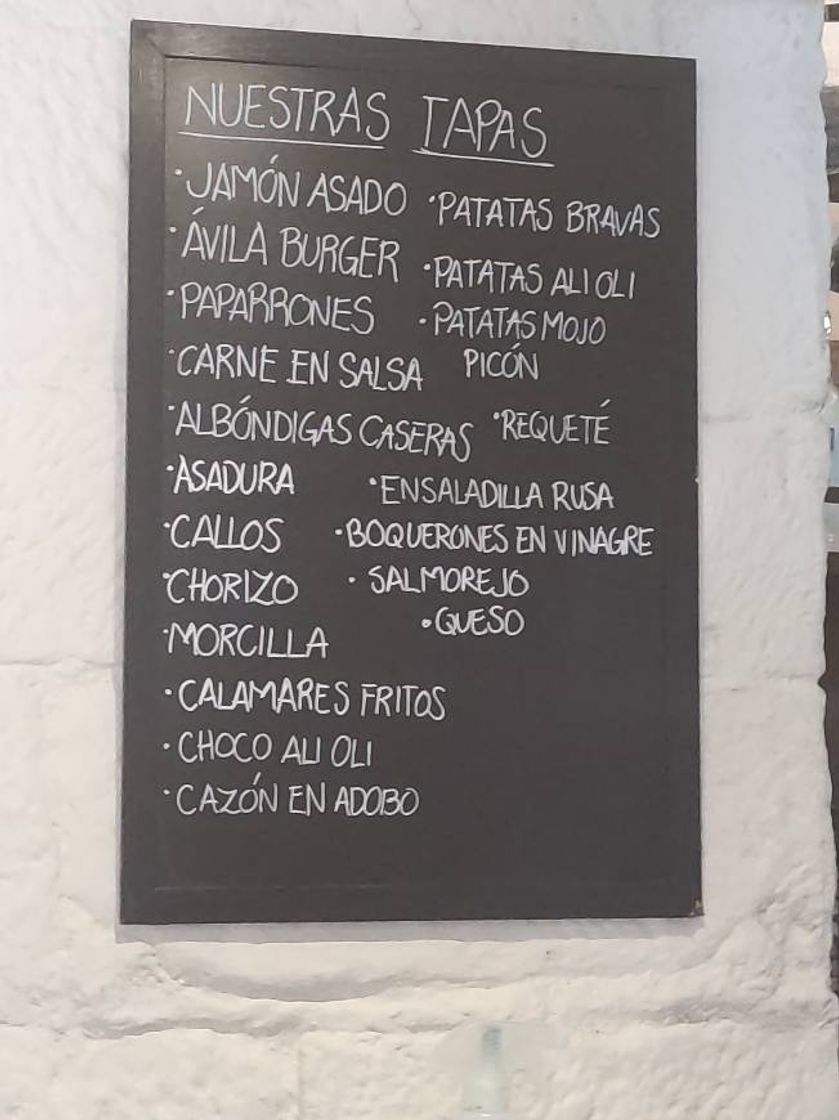 NUESTRAS TAPAS
·JAMÓN ASADO
·ÁVILA BURGER
·PAPARRONES
·CARNE EN SALSA
·ALBÓNDIGAS CASERAS
·ASADURA
·CALLOS
·CHORIZO
·MORCILLA
·CALAMARES FRITOS
·CHOCO ALI OLI
·CAZÓN EN ADOBO
·PATATAS BRAVAS
·PATATAS ALI OLI
·PATATAS MOJO
PICÓN
·REQUETÉ
·ENSALADILLA RUSA
·BOQUERONES EN VINAGRE
·SALMOREJO
·QUESO